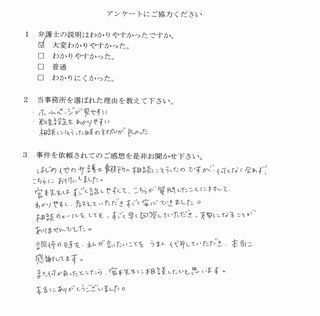 アンケートにご協力ください
1 弁護士の説明はわかりやすかったですか。
☑ 大変わかりやすかった。
□ わかりやすかった。
□ 普通
□ わかりにくかった。
2 当事務所を選ばれた理由を教えて下さい。
・ホームページが見やすい
・料金設定もわかりやすい
・相談にそった時の対応が良かった
3 事件を依頼されてのご感想を是非お聞かせ下さい。
はじめての弁護士
こちらにお願いしました。
宮本先生はすごく話しやすくて、こちらが質問したことに対して
わかりやすく、答えていただきすごく安心できました。
相談のメールをしても、すごく早く回答していただき、不安になることが
ありませんでした。
調停の時も、私が言いたいことを うまく代弁していただき、本当に
感謝してます。
また何かあったとしたら、宮本先生に相談したいと思います。
本当にありがとうございました。